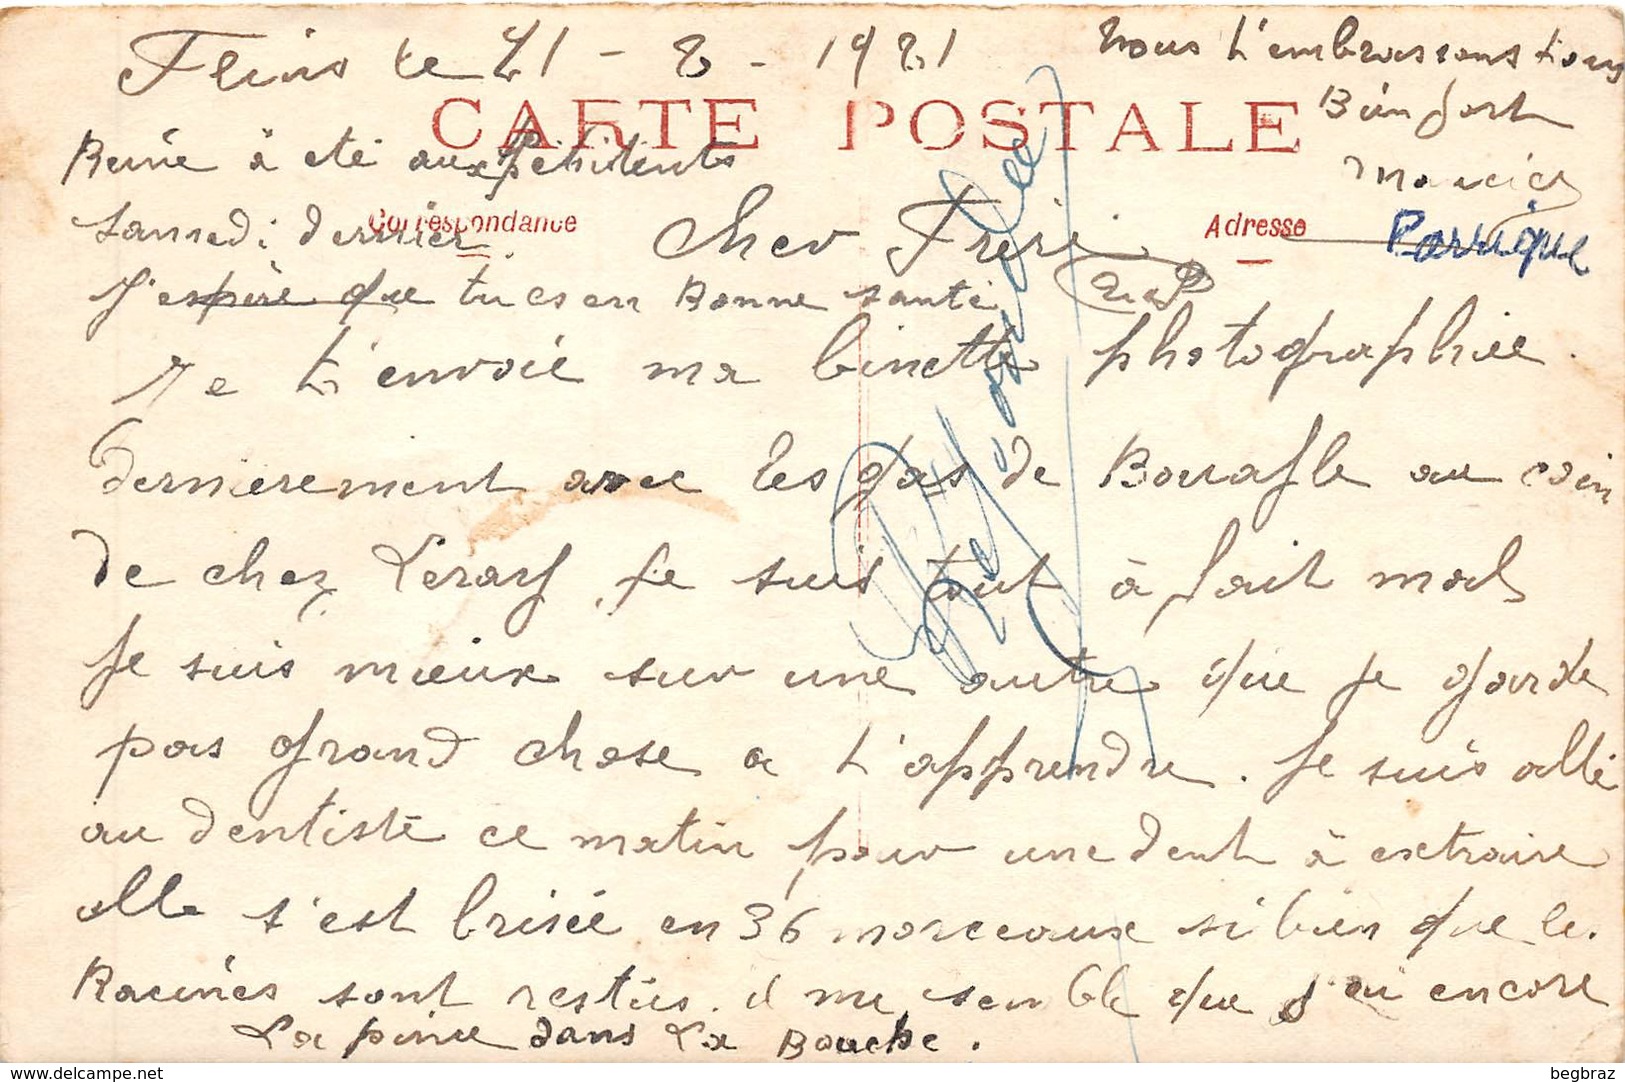 Flins le 21 - 8 - 1921
Nous t'embrassons tous
Bien fort
Maurice
CARTE POSTALE
René à eté aux Penitents
samedi dernier
Correspondance
Adresse
Cher Frère
J'espère que tu es en Bonne santé
Je t'envoie ma binette photographiee.
dernierement avec les gas de Bouafle au coin
de chez Leray, Je suis tout à fait mal
Je suis mieux sur une autre que je garde
pas grand chose a t'apprendre. Je suis allé
au dentiste ce matin pour une dent à extraire
elle s'est brisée en 36 morceaux si bien que le.
Racines sont resties. il me semble que j'ai encore
La pince dans La Bouche.
begbraz
delcampe.net